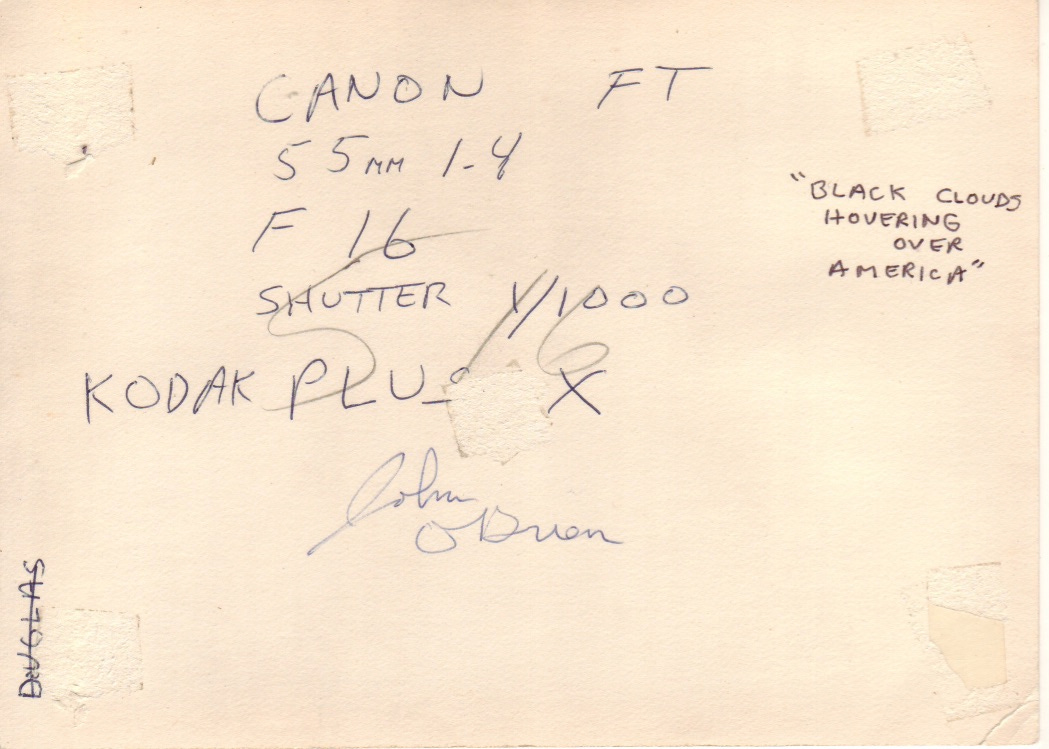 CANON FT
55mm 1-4
F 16
SHUTTER 1/1000
KODAK PLUS X
John
O'Brien
"BLACK CLOUDS
HOVERING
OVER
AMERICA"
5 16
DOUGLAS